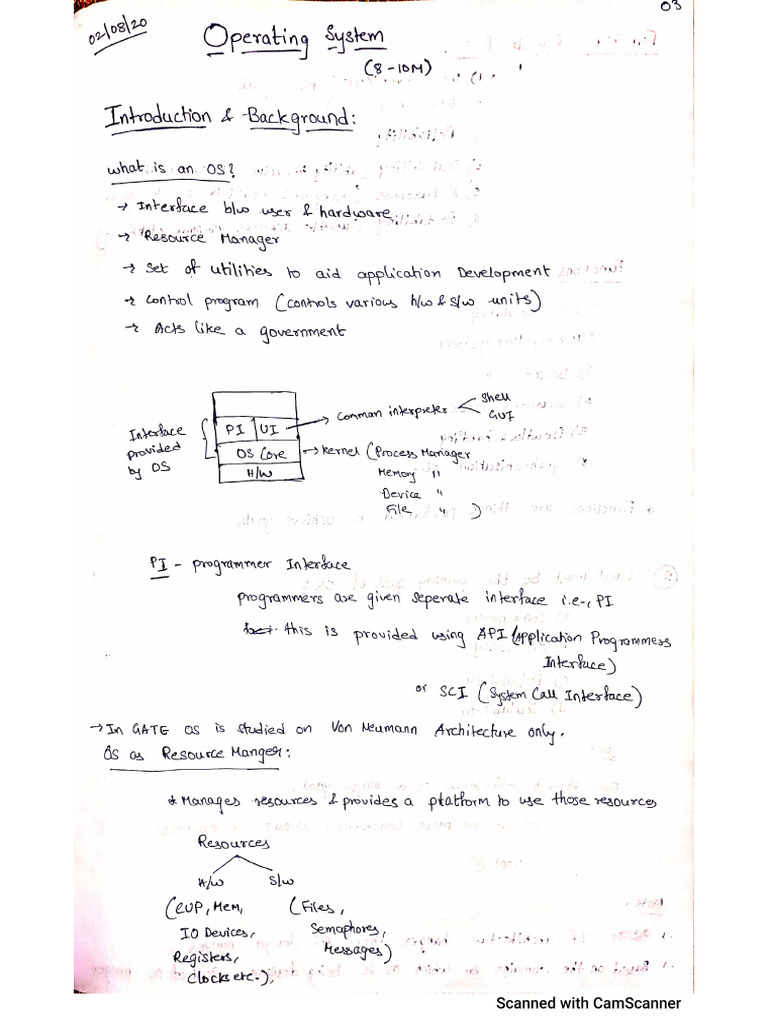 03
02/08/20
Operating System
(8-10M)
Introduction & Background:
what is an OS?
→ Interface b/w user & hardware
→ Resource Manager
→ Set of utilities to aid application Development
→ Control program (controls various h/w & s/w units)
→ Acts like a government
Interface provided by OS
PI | UI → Comman interpreter < Shell
GUI
OS Core → Kernel (Process Manager
H/W
Memory "
Device "
File " )
PI - programmer Interface
programmers are given seperate interface i.e., PI
this is provided using API (Application Programmers
Interface)
or SCI (System Call Interface)
→ In GATE OS is studied on Von Neumann Architecture only.
OS as Resource Manger:
* Manages resources & provides a platform to use those resources
Resources
H/w S/w
(CUP, Mem, (Files,
IO Devices, Semaphores,
Registers, Messages)
Clocks etc.),
Scanned with CamScanner